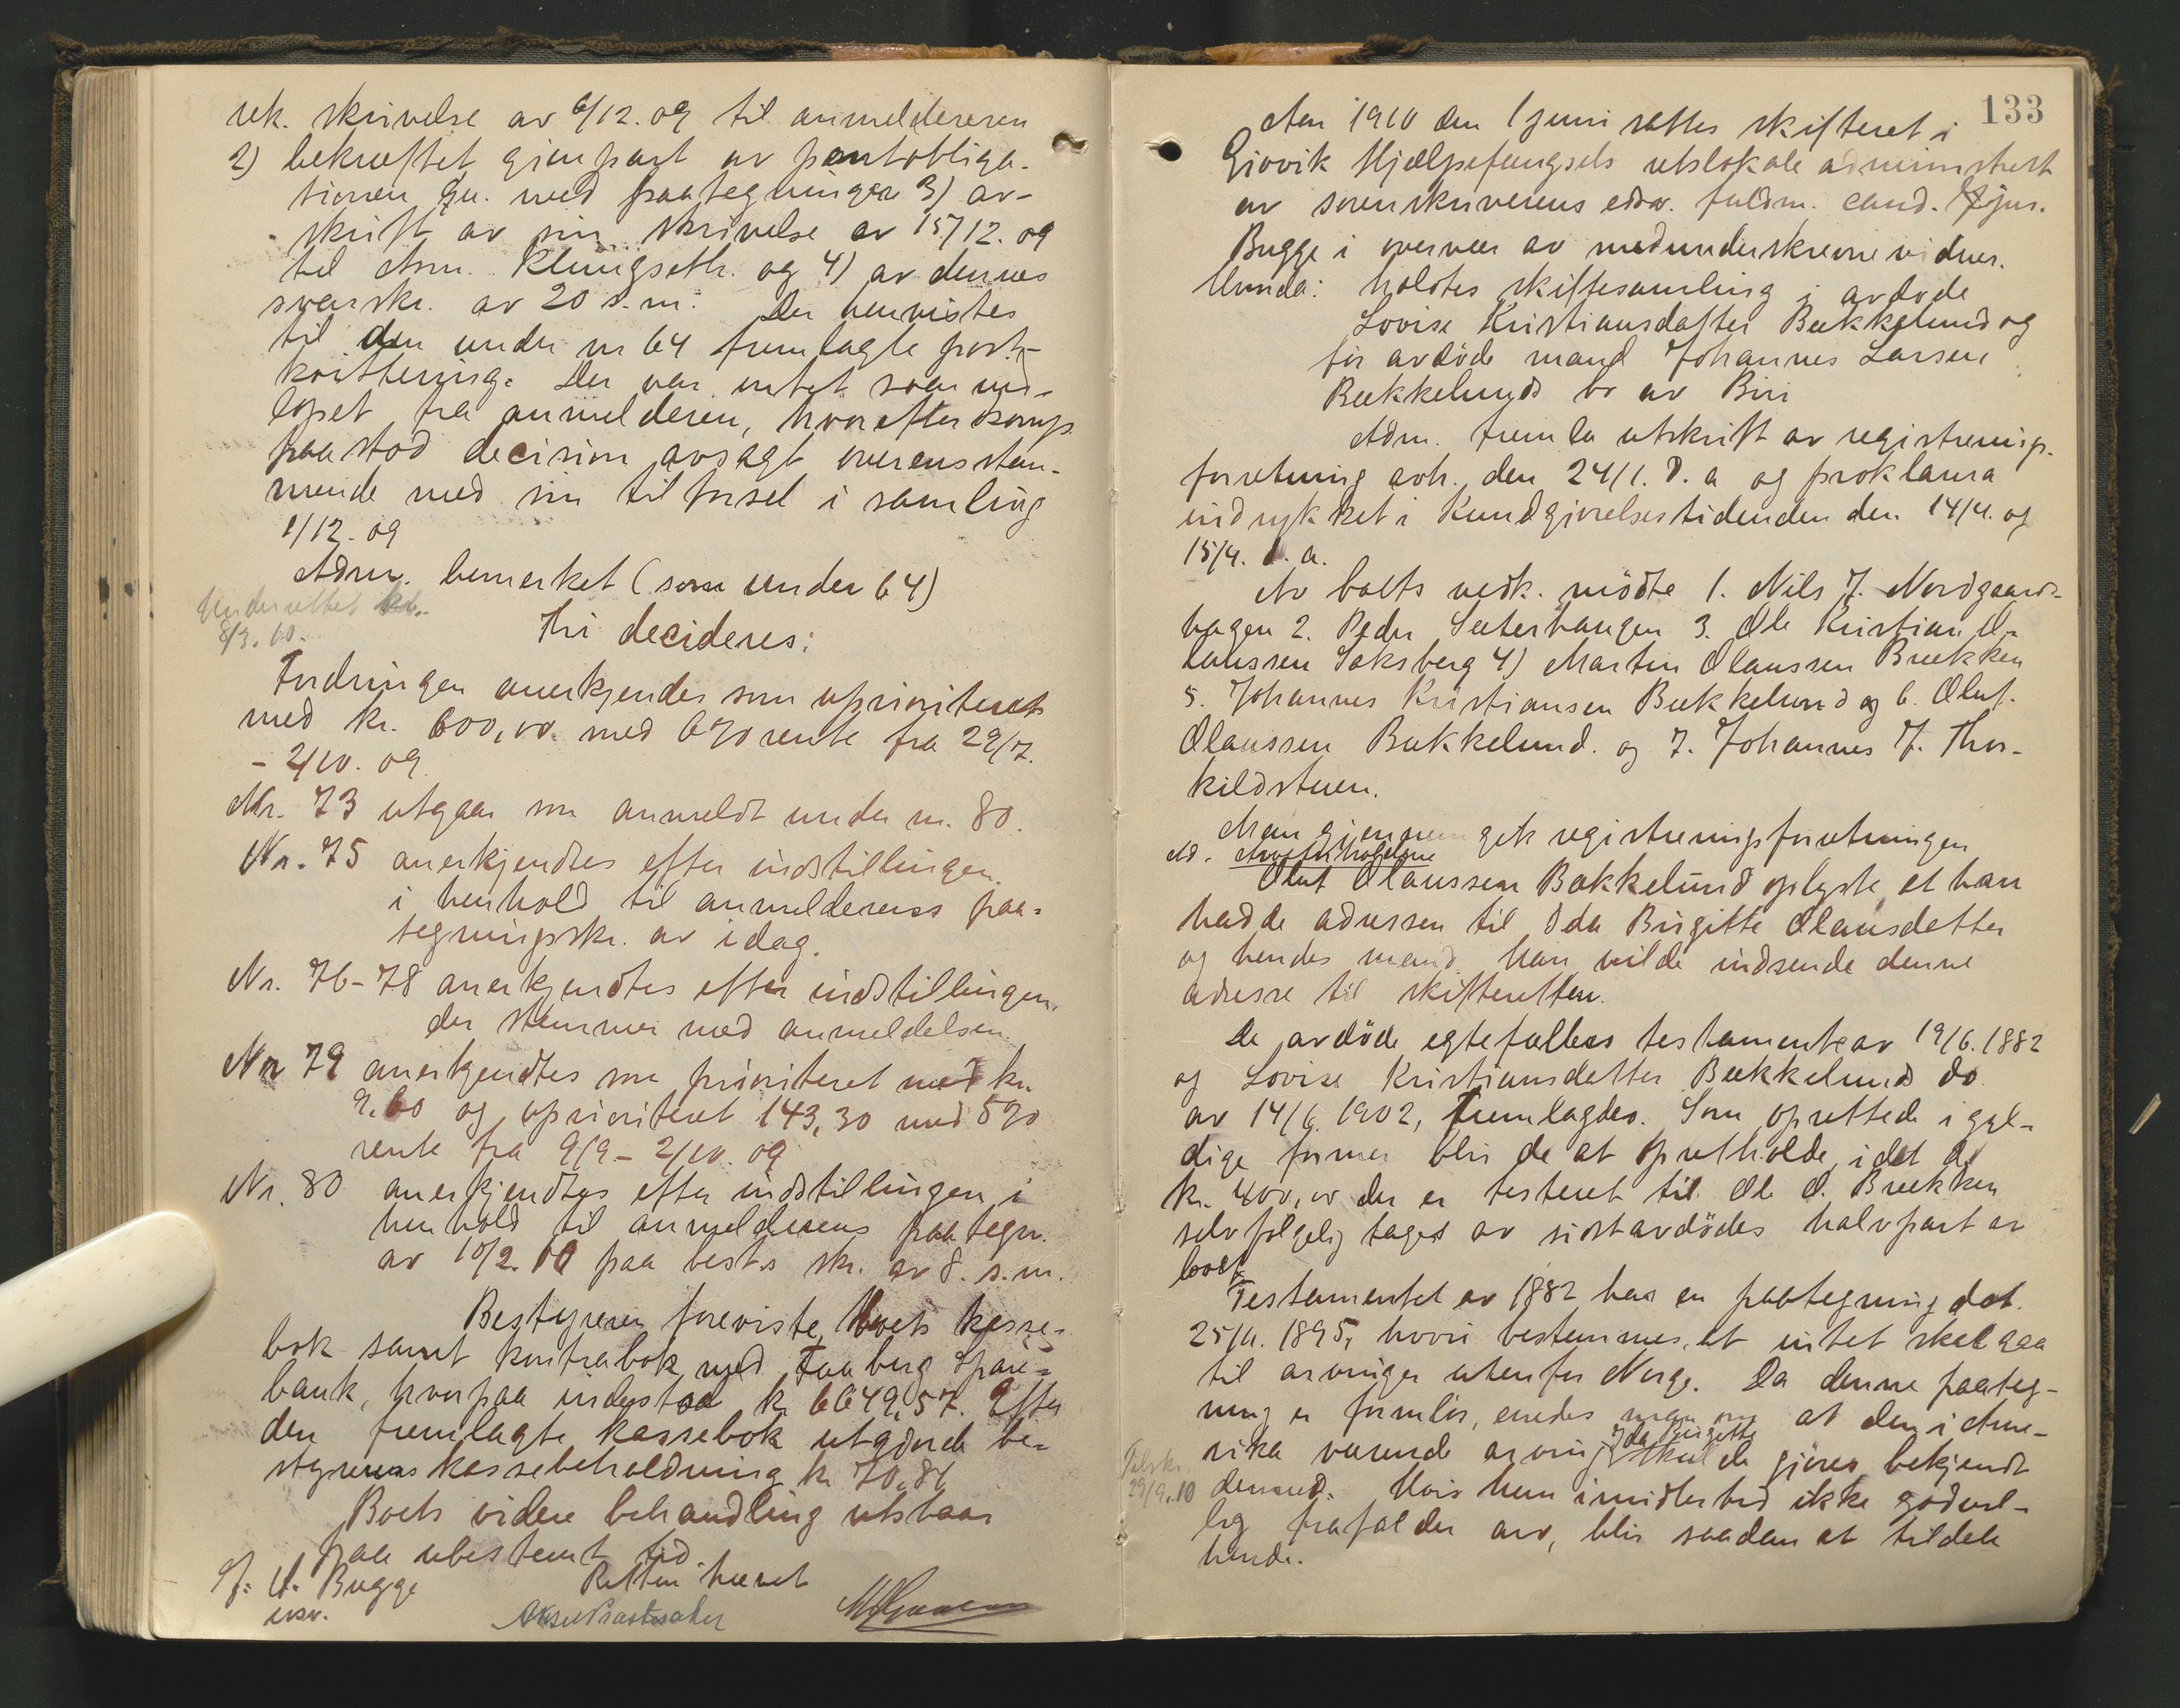 rek. skrivelse av 6/12. 09 til anmelderen
2) bekræftet gjenpart av pantobliga-
tionen med paategninger 3) av-
skrift av sin skrivelse av 15/12. 09
til Adm. Klingseth. og 4) av dennes
svarskr. av 20 s.m. Der henvistes
til den under nr 64 fremlagte post-
kvittering. Der var intet svar ind-
løpet fra anmelderen, hvorefter komp.
paastod decision avsagt overensstem-
mende med sin tilførsel i samling
1/12. 09
Adm. bemerket (som under 64)
Underrettet
8/3. 10.
Thi decideres:
Fordringen anerkjendes som uprioriteret
med kr. 600,00 med 6% rente fra 29/7.
- 2/10. 09
Nr. 73 utgaar som anmeldt under nr. 80.
Nr. 75 anerkjendtes efter indstillingen
i henhold til anmelderens paa-
tegningskr. av idag.
Nr. 76-78 anerkjendtes efter indstillingen,
der stemmer med anmeldelsen
Nr 79 anerkjendtes som prioriteret med kr.
9.60 og uprioriteret 143,30 med 5%
rente fra 9/9 - 2/10. 09
Nr. 80 anerkjendtes efter indstillingen, i
henhold til anmelderens paategn.
av 10/2. 10 paa best.s skr. av 8. s.m.
Bestyreren foreviste boets kasse-
bok samt kontrabok med Faaberg Spare-
bank, hvorpaa indestod kr 6649,57. Efter
den fremlagte kassebok utgjorde be-
styrerens kassebeholdning kr 70,86
Boets videre behandling utstaar
paa ubestemt tid.
Retten hævet
Bugge
133
Aar 1910 den 1 juni sattes skifteret i
Gjøvik Hjælpefængsels retslokale administrert
av sorenskriverens edsv. fuldm. cand. jur.
Bugge i overvær av medunderskrevne vidner.
Hvorda: holdtes skiftesamling i avdøde
Lovise Kristiansdatter Bækkelund og
før avdøde mand Johannes Larsen
Bækkelunds bo av Biri
Adm. fremla utskrift av registrerings-
forretning avh. den 24/1. d. a og proklama
indrykket i Kundgjørelsestidenden den 14/4. og
15/4. d. a.
Av boets vedk. mødte 1. Nils J. Nordgaards-
hagen 2. Peder Sæterhaugen 3. Ole Kristian O-
laussen Saksberg 4) Martin Olaussen Brækken
5. Johannes Kristiansen Bækkelund og 6. Oluf
Olaussen Bækkelund. og 7. Johannes J. Thor-
kildstuen.
Man gjennemgik registreringsforretningen
Ad. Arveforholdene
Oluf Olaussen Bækkelund oplyste, at han
hadde adressen til Ida Birgitte Olausdatter
og hendes mand. Han vilde indsende denne
adresse til skifteretten.
De avdøde egtefællers testament av 19/6. 1882
og Lovise Kristiansdatter Bækkelunds do.
av 14/6. 1902, fremlagdes. Som oprettede i gyl-
dige former blir de at opretholde, idet de
kr. 400,00 der er testeret til Ole O. Brækken
selvfølgelig tages av sistavdødes halvpart av
boet.
Testamentet av 1882 har en paategning dat.
25/11. 1895, hvori bestemmes, at intet skal gaa
til arvinger utenfor Norge. Da denne paateg-
ning er formløs, enedes man om at den i Ame-
rika værende arving Ida Birgitte skulde gjøres bekjendt
29/9. 10
dermed. Hvis hun imidlertid ikke godvil-
lig frafalder arv, blir saadan at tildele
hende.